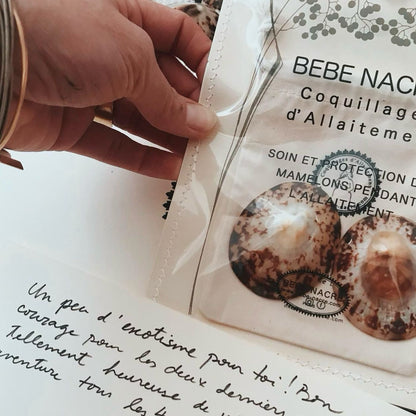 BEBE NAC
Coquillage
d'Allaiteme
SOIN ET PROTECTION D
MAMELONS PENDANT
L'ALLAITEMENT
BEBE NACRE
Un peu d'exotisme pour toi! Bon
courage pour les deux derniers
tellement heureuse de
aventure tous les 4